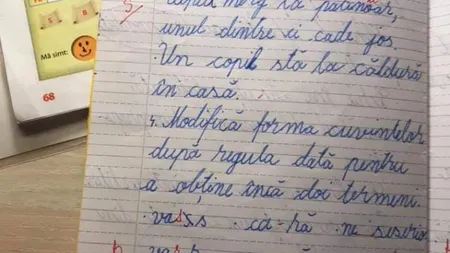 S
S
Mă simt:
68
5
copiii merg la patinoar,
unul dintre ei cade jos.
Un copil stă la căldură
în casă.
4. Modifică forma cuvintelor
după regula dată pentru
a obține încă doi termeni
vas-s ca-ră ne